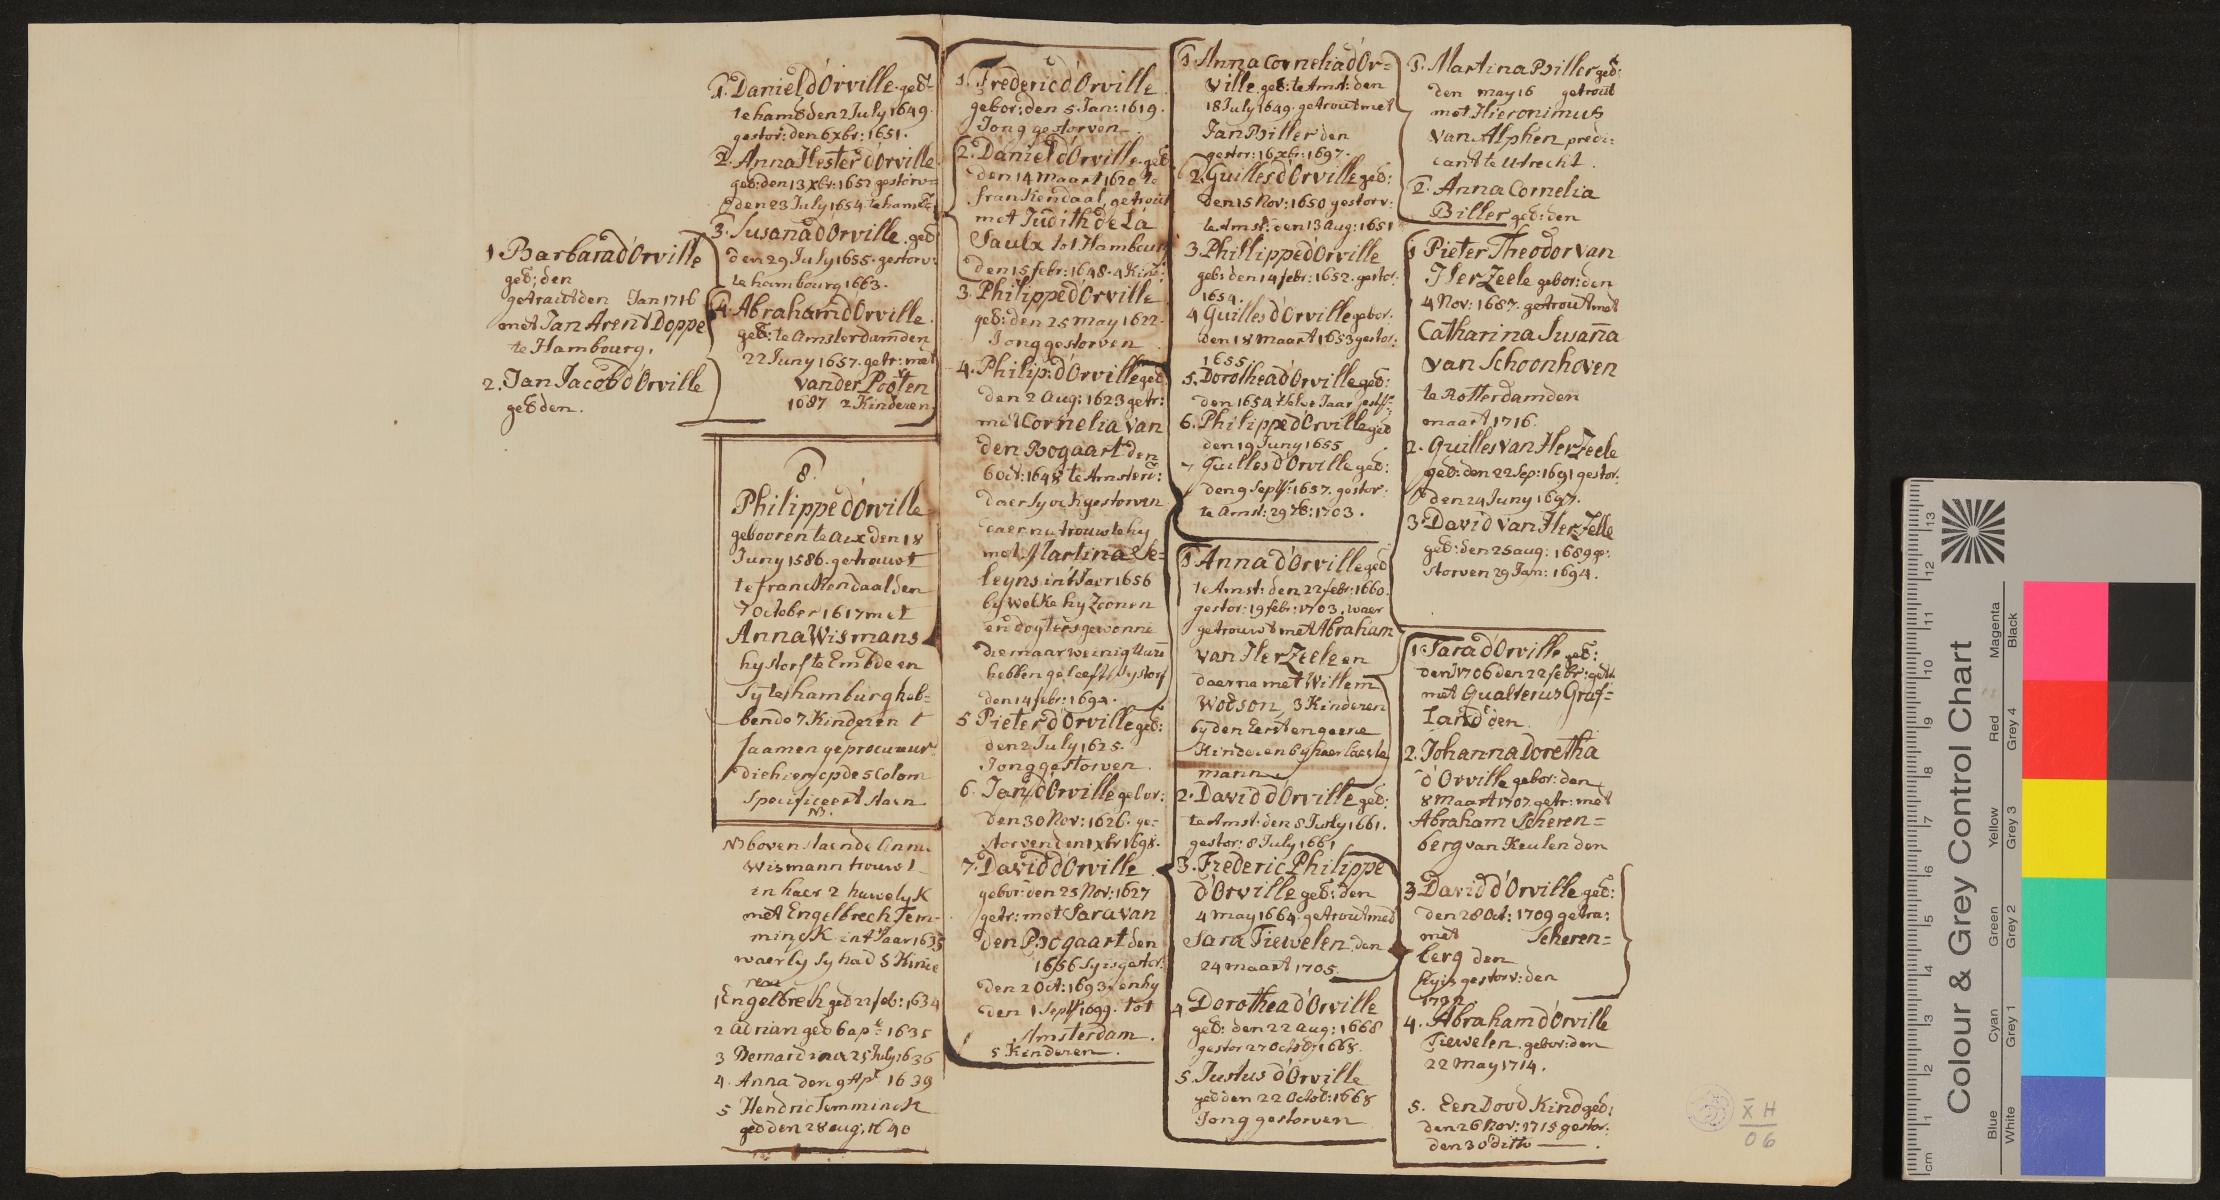 1 Barbara d'Orville
geb: den
getraut den Jan 1716
met Jan Arent Doppe
te Hambourg.
2. Jan Jacob d'Orville
geb den.
1. Daniel d'Orville geb
te hamb den 2 July 1649.
gestor: den 6 xbr: 1651.
2. Anna Hester d'Orville
geb: den 13 xbr: 1652 gestorv=
den 23 July 1654 te hamb
3. Susana d'Orville geb
den 29 July 1655. gestorv:
te hambourg 1663.
4. Abraham d'Orville
geb: te Amsterdam den
22 Juny 1657. getr: met
vander Pooten
1687 2 Kinderen
8
Philippe d'Orville
gebooren te Aix den 18
Juny 1586. getrouwt
te franckendaal den
7 October 1617 met
Anna Wismans
hy storf te Embden en
sy tes hamburg heb=
bende 7 Kinderen t
saamen geprocureur
die hier op de 5 Colom
specificeert staen
NB.
NB boven staende Anna
Wismann trouwt
in haer 2 huwelyk
met Engelbrech Tem-
minck int Jaar 1633
waer by sy had 5 Kinde
ren
1 Engelbrech geb 22 feb: 1634
2 Adrian geb 6 ap: 1635
3 Bernardina 25 July 1636
4. Anna den 9 Ap: 1639
5 Hendric Temminck
geb den 28 aug: 1640
1. Frederic d'Orville
gebor: den 5 Jan: 1619.
Jong gestorven
2. Daniel d'Orville geb
den 14 maart 1620 te
frankendaal, getrout
met Judith de La
Saulx tot Hambourg
den 15 febr: 1648. 4 Kind:
3. Philippe d'Orville
geb: den 25 may 1622.
Jong gestorven
4. Philip: d'Orville geb:
den 2 Aug: 1623 getr:
met Cornelia van
den Bogaart den
6 oct: 1648 te Amsterd:
daer sy ock gestorven
daer na trouwte hy
met Martina Se=
leyns int Jaer 1656
by welke hy Zoonen
en dogters gewonne
die maar weinig Uure
hebben geleeft, sy storf
den 14 febr: 1694.
5 Pieter d'Orville geb:
den 2 July 1625.
Jong gestorven.
6. Jan d'Orville gebor:
den 30 Nov: 1626. ge-
storven den 1 xbr 1698.
7. David d'Orville
gebor: den 25 Nov: 1627
getr: met Sara van
den Bogaart den
1656 sy is gestor:
den 2 Oct: 1693. en hy
den 1 Sept 1699. tot
Amsterdam.
5 Kinderen.
1 Anna Cornelia d'Or=
ville geb: te Amst: den
18 July 1649. getrout met
Jan Biller den
gestor: 16 xbr: 1697.
2. Guilles d'Orville geb:
den 15 Nov: 1650 gestorv:
te Amst: den 13 Aug: 1651
3. Phillippe d'Orville
geb: den 14 febr: 1652. gestor:
1654.
4 Guilles d'Orville gebor:
den 18 maart 1653 gestor:
1655
5. Dorothea d'Orville geb:
den 1654 Jaar
6. Philippe d'Orville geb
den 19 Juny 1655
7 Guilles d'Orville geb:
den 9 Sept: 1657. gestor:
te Amst: 29 1703.
1 Anna d'Orville geb
te Amst: den 22 febr: 1660.
gestor: 19 febr: 1703. waer
getrouwt met Abraham
van HerZeele en
daerna met Willem
Wotson, 3 Kinderen
by den Eersten geene
Kinderen by haer laeste
mann
2. David d'Orville geb:
te Amst: den 8 July 1661.
gestor: 8 July 1661
3. Frederic Philippe
d'Orville geb: den
4 may 1664. getrout met
Sara Tiewelen den
24 maart 1705.
4 Dorothea d'Orville
geb: den 22 aug: 1668
gestor 27 Octob: 1668.
5 Justus d'Orville
geb den 22 Octob: 1668
Jong gestorven
1. Martina Biller geb:
den may 16 getrout
met Hieronimus
van Alphen predi:
cant te Utrecht.
2. Anna Cornelia
Biller geb: den
1 Pieter Theodor van
HerZeele gebor: den
4 Nov: 1687. getrout met
Catharina Susaña
van Schoonhoven
te Rotterdam den
maart 1716.
2. Guilles van HerZeele
geb: den 22 Sep: 1691 gestor.
den 24 Juny 1697.
3. David van HerZelle
geb: den 25 aug: 1689 ge:
storven 29 Jan: 1694.
1. Sara d'Orville geb:
den 1706 den 22 febr: getr:
met Gualterus Graf=
land den.
2. Johanna Doretha
d'Orville gebor: den
8 maart 1707. getr: met
Abraham Scheren=
berg van Keulen den
3 David d'Orville geb:
den 28 Oct: 1709 getra:
met Scheren=
berg den
hy is gestorv: den
4. Abraham d'Orville
Tiewelen. gebor: den
22 may 1714.
5. Een Dood Kind geb:
den 26 Nov: 1715 gestor:
den 30 ditto
X H
06
Colour & Grey Control Chart
Blue Cyan Green Yellow Red Magenta
White Grey 1 Grey 2 Grey 3 Grey 4 Black
cm 1 2 3 4 5 6 7 8 9 10 11 12 13